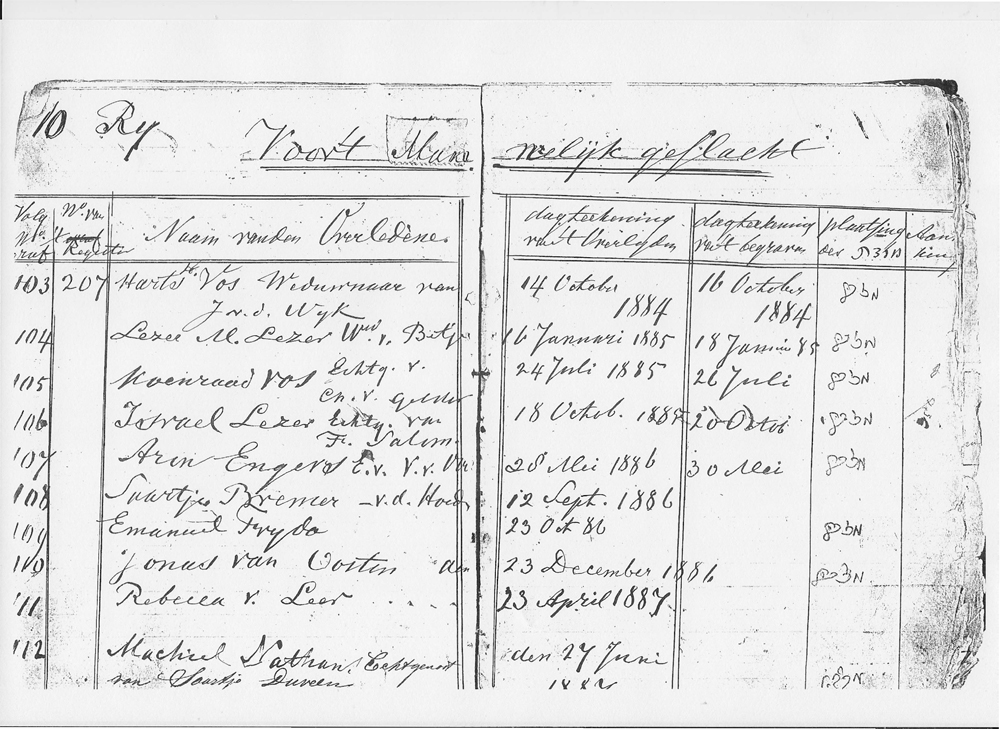 10 Ry
Voor't Mannelijk geslacht
Volg No. graf
No. van Register
Naam van den Overledene
dagteekening van't Overlyden
dagteekening van't begraven
plaatsing der מצבה
103 207 Harts Vos Weduwnaar van 14 October 16 October מצבה
J. v. d. Wyk 1884 1884
104 Lezer M. Lezer Wed. v. Betje 16 Januari 1885 18 Januari 85 מצבה
105 Koenraad Vos Echtg. v. 24 Juli 1885 26 Juli מצבה
Ch. v. Gelder
106 Israel Lezer Echtg. van 18 Octob. 1885 20 Octo מצבה
Fr. Salom.
107 Aron Engers E. v. V. v. 28 Mei 1886 30 Mei מצבה
108 Saartje Bremer - v. d. Hoed 12 Sept. 1886
109 Emanuel Fryda 23 Oct 86 מצבה
110 Jonas van Oosten den 23 December 1886 מצבה
111 Rebecca v. Leer 23 April 1887.
112 Machiel Nathans Echtgenoot den 27 Juni
van Saartje Duveen מצבה